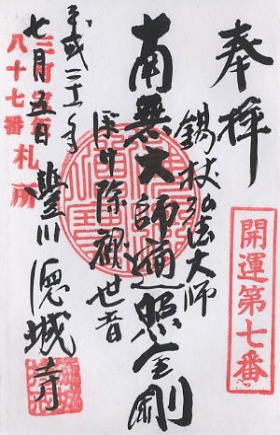 奉拝
開運第七番
錫杖弘法大師
南無大師遍照金剛
厄除観世音
平成二十一年
七月五日
八十七番札所
豊川徳城寺